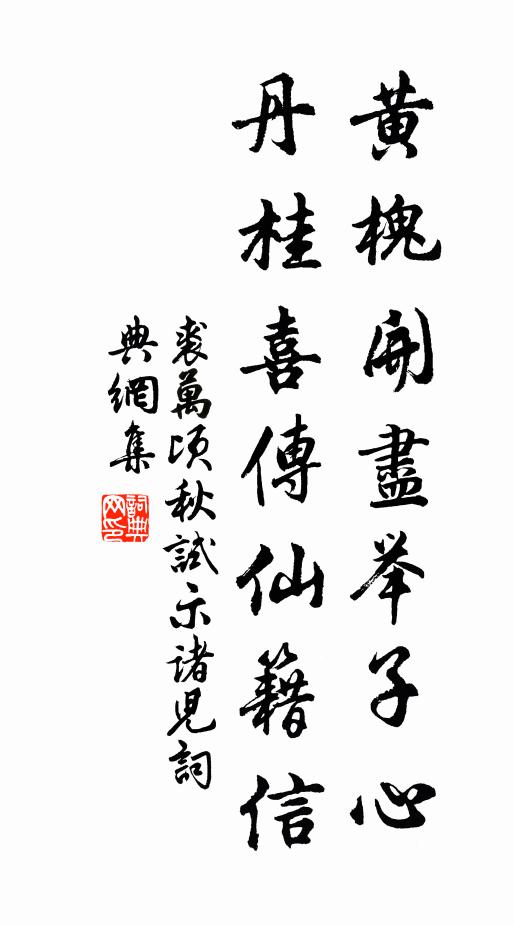 黄槐開盡举子心
丹桂喜傳仙籍信
裘萬頃秋試示諸児詞
典網集
詞典网印